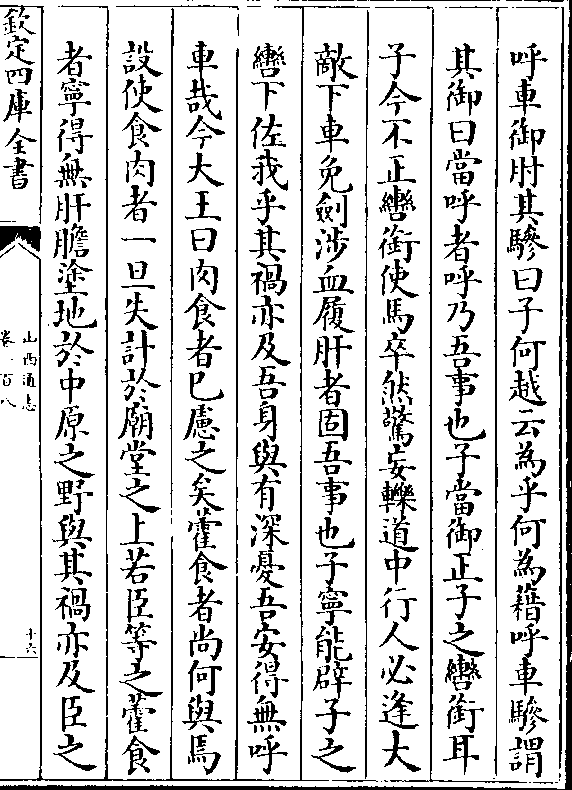 呼車御肘其驂曰子何越云為乎何為藉呼車驂謂
其御曰當呼者呼乃吾事也子當御正子之轡銜耳
子今不正轡銜使馬卒然驚妄轢道中行人必逢大
敵下車免劍涉血履肝者固吾事也子寧能辟子之
轡下佐我乎其禍亦及吾身與有深憂吾安得無呼
車哉今大王曰肉食者已慮之矣藿食者尚何與焉
設使食肉者一旦失計於廟堂之上若臣等之藿食
者寧得無肝膽塗地於中原之野與其禍亦及臣之
欽定四庫全書
山西通志
卷一百八
十六